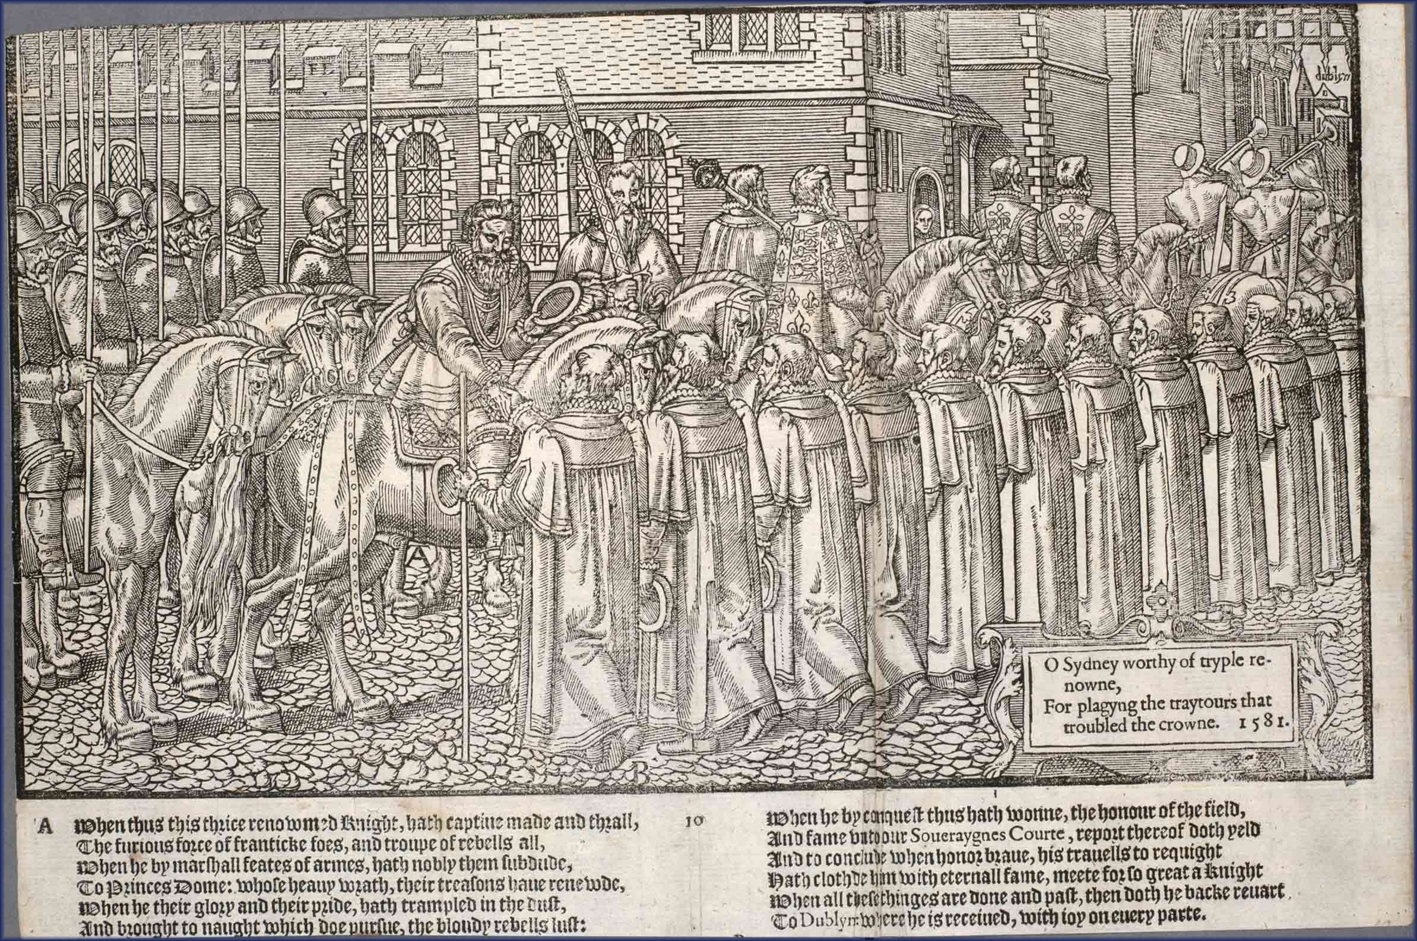 dublyn
A
O Sydney worthy of tryple re-
nowne,
For plagyng the traytours that
troubled the crowne. 1581.
A When thus this thrice renowmed Knight, hath captiue made and thrall,
The furious force of franticke foes, and troupe of rebells all,
When he by marshall feates of armes, hath nobly them subdude,
To Princes Dome: whose heauy wrath, their treasons haue renewde,
When he their glory and their pride, hath trampled in the dust,
And brought to naught which doe pursue, the bloudy rebells lust:
10
When he by conquest thus hath wonne, the honour of the field,
And fame vnto our Soueraygnes Courte, report thereof doth yeld
And to conclude when honor braue, his trauells to requight
Hath clothde him with eternall fame, meete for so great a Knight
When all these thinges are done and past, then doth he backe reuart
To Dublyn: where he is receiued, with ioy on euery parte.